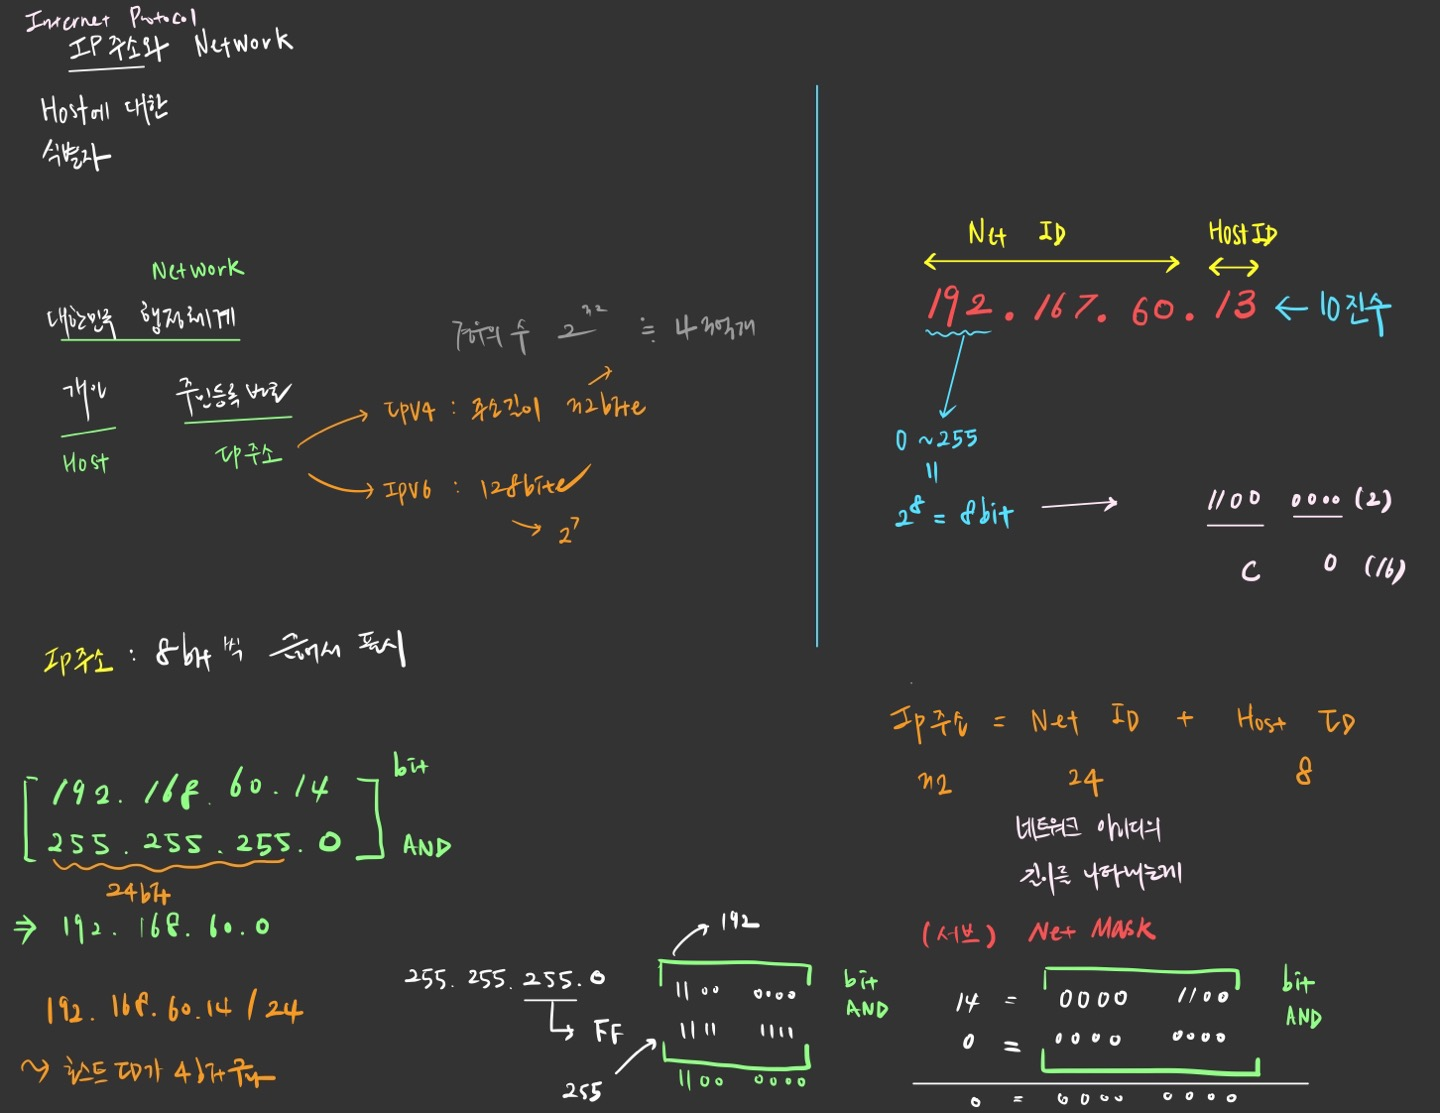 Internet Protocol
IP주소와 Network
Host에 대한
식별자
Network
대한민국 행정체계
개인 주민등록 번호
Host IP주소
경우의 수 2^32 ≒ 4 3억개
IPV4 : 주소길이 32bite
IPV6 : 128bite
→ 2^7
IP주소 : 8bit 씩 끊어서 표시
Net ID Host ID
192.167.60.13 ← 10진수
0 ~ 255
||
2^8 = 8bit → 1100 0000 (2)
C 0 (16)
Ip주소 = Net ID + Host ID
32 24 8
네트워크 아이디의
길이를 나타내는게
(서브) Net Mask
192.168.60.14 bit
255.255.255.0 AND
24bit
⇒ 192.168.60.0
192.168.60.14/24
~> 호스트 ID가
255.255.255.0
FF
192
1100 0000 bit
1111 1111 AND
255
1100 0000
14 = 0000 1100 bit
0 = 0000 0000 AND
0 = 0000 0000